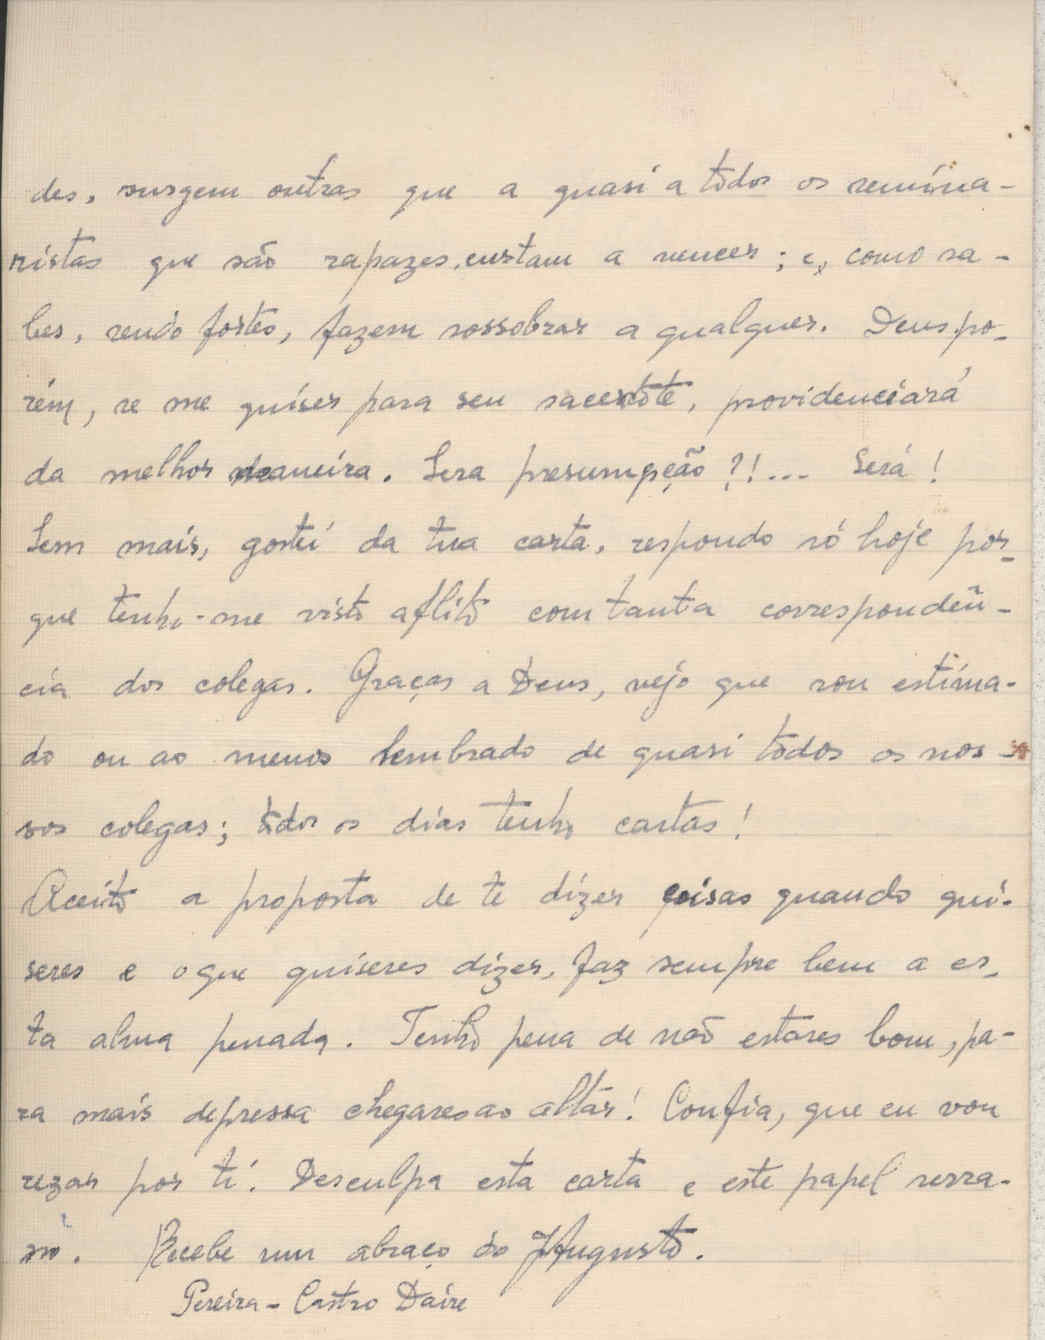 des, surgem outras que a quasi a todos os semina-
ristas que são rapazes, custam a vencer; e, como sa-
bes, sendo fortes, fazem sossobrar a qualquer. Deus, po-
rém, se me quiser para seu sacerdote, providenciará
da melhor maneira. Sera presumpção?!... Será!
Sem mais, gostei da tua carta, respondo só hoje por-
que tenho-me visto aflito com tanta correspondên-
cia dos colegas. Graças a Deus, vejo que sou estima-
do ou ao menos lembrado de quasi todos os nos-
sos colegas; todos os dias tenho cartas!
Aceito a proposta de te dizer coisas quando qui-
seres e o que quiseres dizer, faz sempre bem a es-
ta alma penada. Tenho pena de não estares bom, pa-
ra mais depressa chegares ao altar! Confia, que eu vou
rezar por ti. Desculpa esta carta e este papel
Recebe um abraço do Augusto.
Pereira - Castro Daire